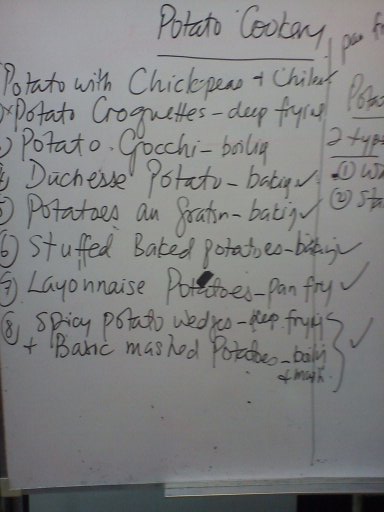 Potato Cookery
pan
Potato with Chickpeas +
Potato Croquettes - deep frying
Potato. Gocchi - boilig
Duchesse Potato - bakig ✓
5 Potatoes au Gratin - bakig ✓
⑥ Stuffed Baked potatoes - bakig ✓
⑦ Layonnaise Potatoes - pan fry ✓
⑧ Spicy potato wedges - deep fryig
+ Basic mashed Potatoes - boilig ✓
+ mash.
2 typ
①
②